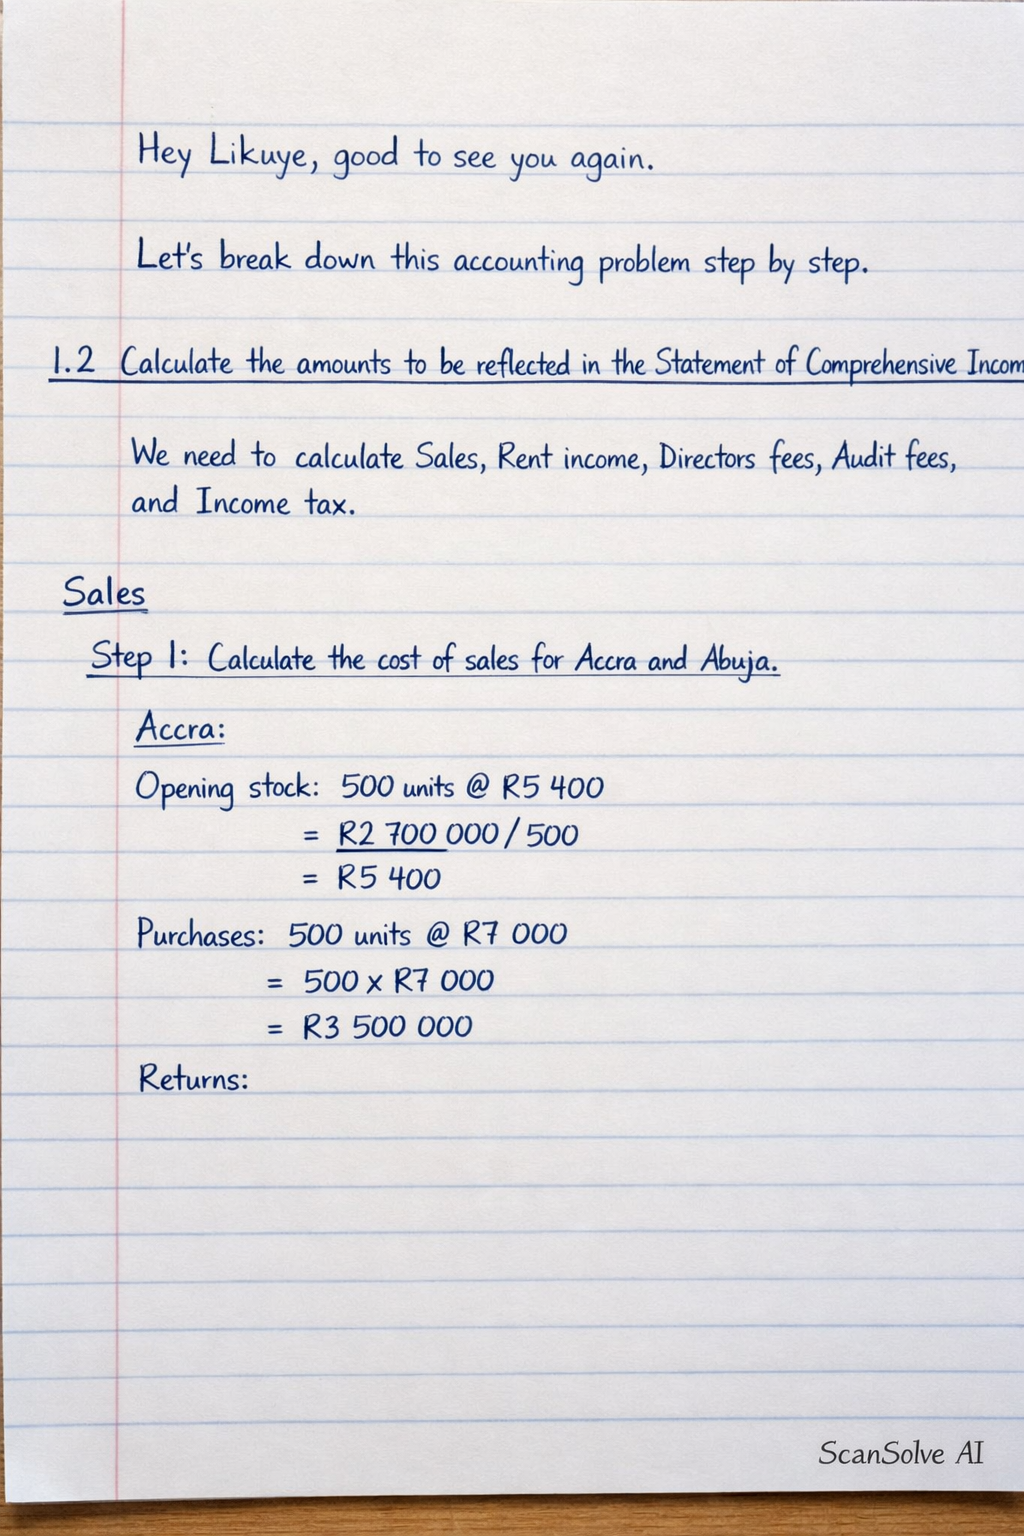 Hey Likuye, good to see you again.
Let's break down this accounting problem step by step.
1.2 Calculate the amounts to be reflected in the Statement of Comprehensive Incom
We need to calculate Sales, Rent income, Directors fees, Audit fees,
and Income tax.
Sales
Step 1: Calculate the cost of sales for Accra and Abuja.
Accra:
Opening stock: 500 units @ R5 400
= R2 700 000/500
= R5 400
Purchases: 500 units @ R7 000
= 500 x R7 000
= R3 500 000
Returns:
ScanSolve AI